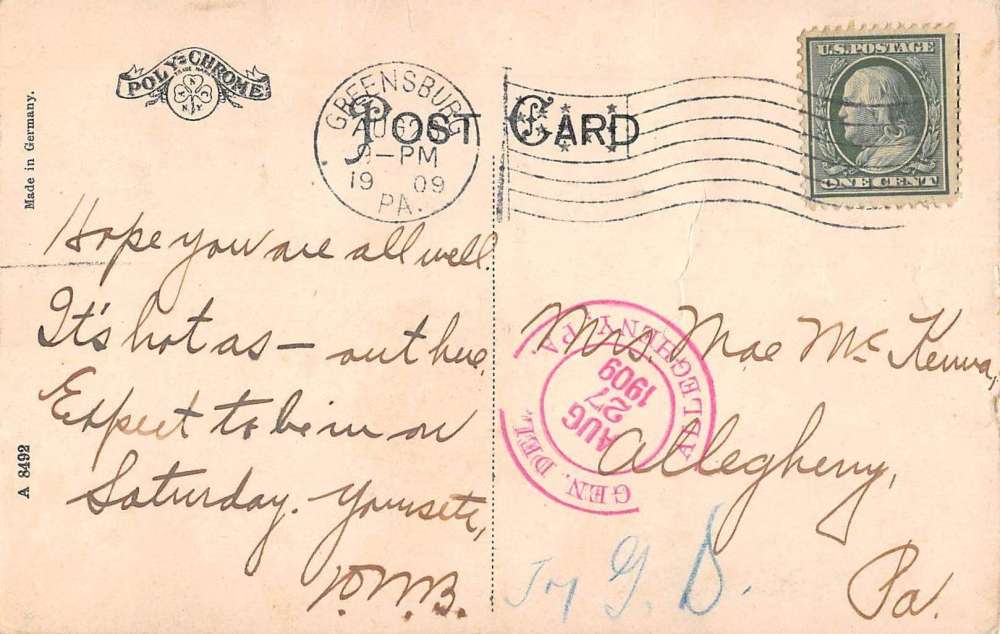 POLY-CHROME
TRADE MARK
Made in Germany.
A 8492
POST CARD
GREENSBURG
AUG
9-PM
1909
PA.
U.S. POSTAGE
ONE CENT
Hope you are all well.
It's hot as — out here.
Expect to be in on
Saturday. Yours etc,
Mrs. Mae McKenna,
Allegheny,
Pa.
GEN. DEL'Y
ALLEGHENY, PA.
AUG
27
1909
G. D.